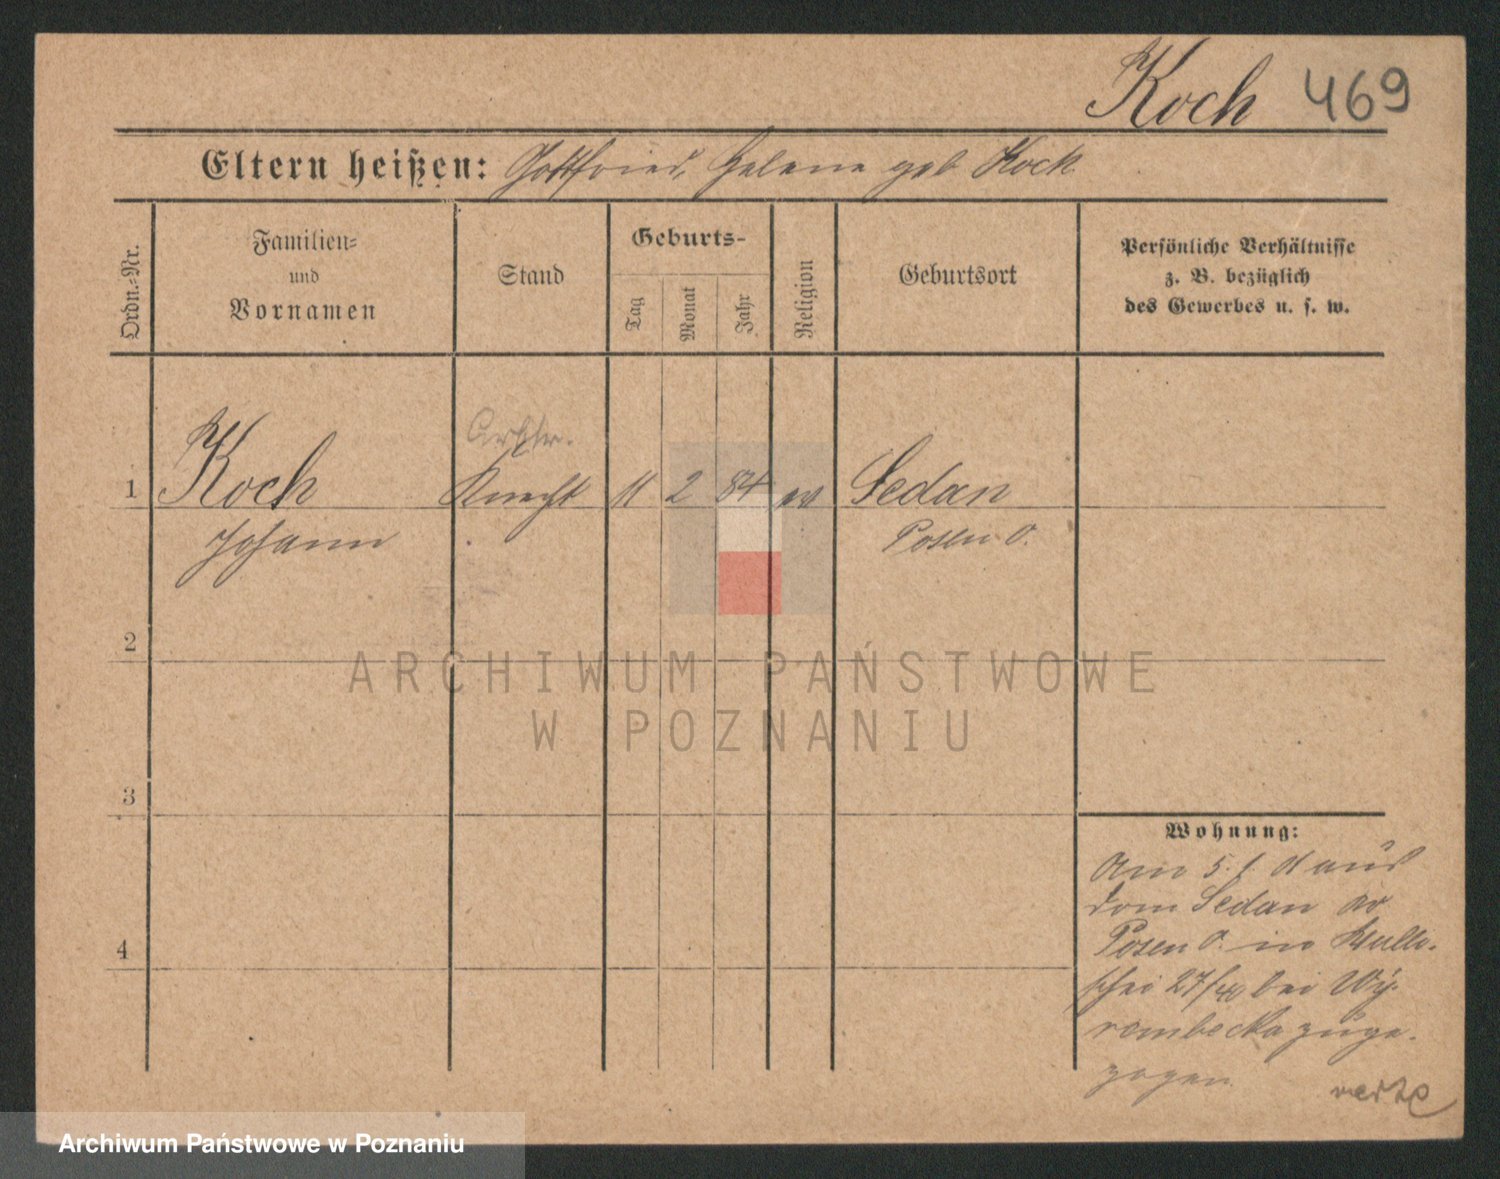 Koch 469
Eltern heißen: Gottfried, Helene geb Koch
Ordn.-Nr.
Familien-
und
Vornamen
Stand
Geburts-
Tag
Monat
Jahr
Religion
Geburtsort
Persönliche Verhältnisse
z. B. bezüglich
des Gewerbes u. s. w.
1 Koch Knecht 11 2 84 ev Sedan
Johann Posen O.
2
3
4
Wohnung:
Am 5. aus
Sedan
Posen O. in
27/40 bei Wy-
rembecka zuge-
zogen
ARCHIWUM PAŃSTWOWE
W POZNANIU
Archiwum Państwowe w Poznaniu